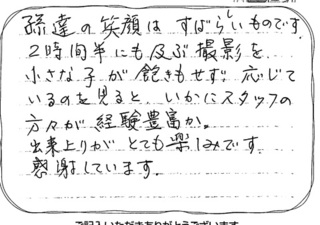 孫達の笑顔は すばらしいものです。
2時間半にも及ぶ撮影を
小さな子が飽きもせず 応じて
いるのを見ると、いかにスタッフの
方々が経験豊富か。
出来上りがとても楽しみです。
感謝しています。
ご記入いただきありがとうございます